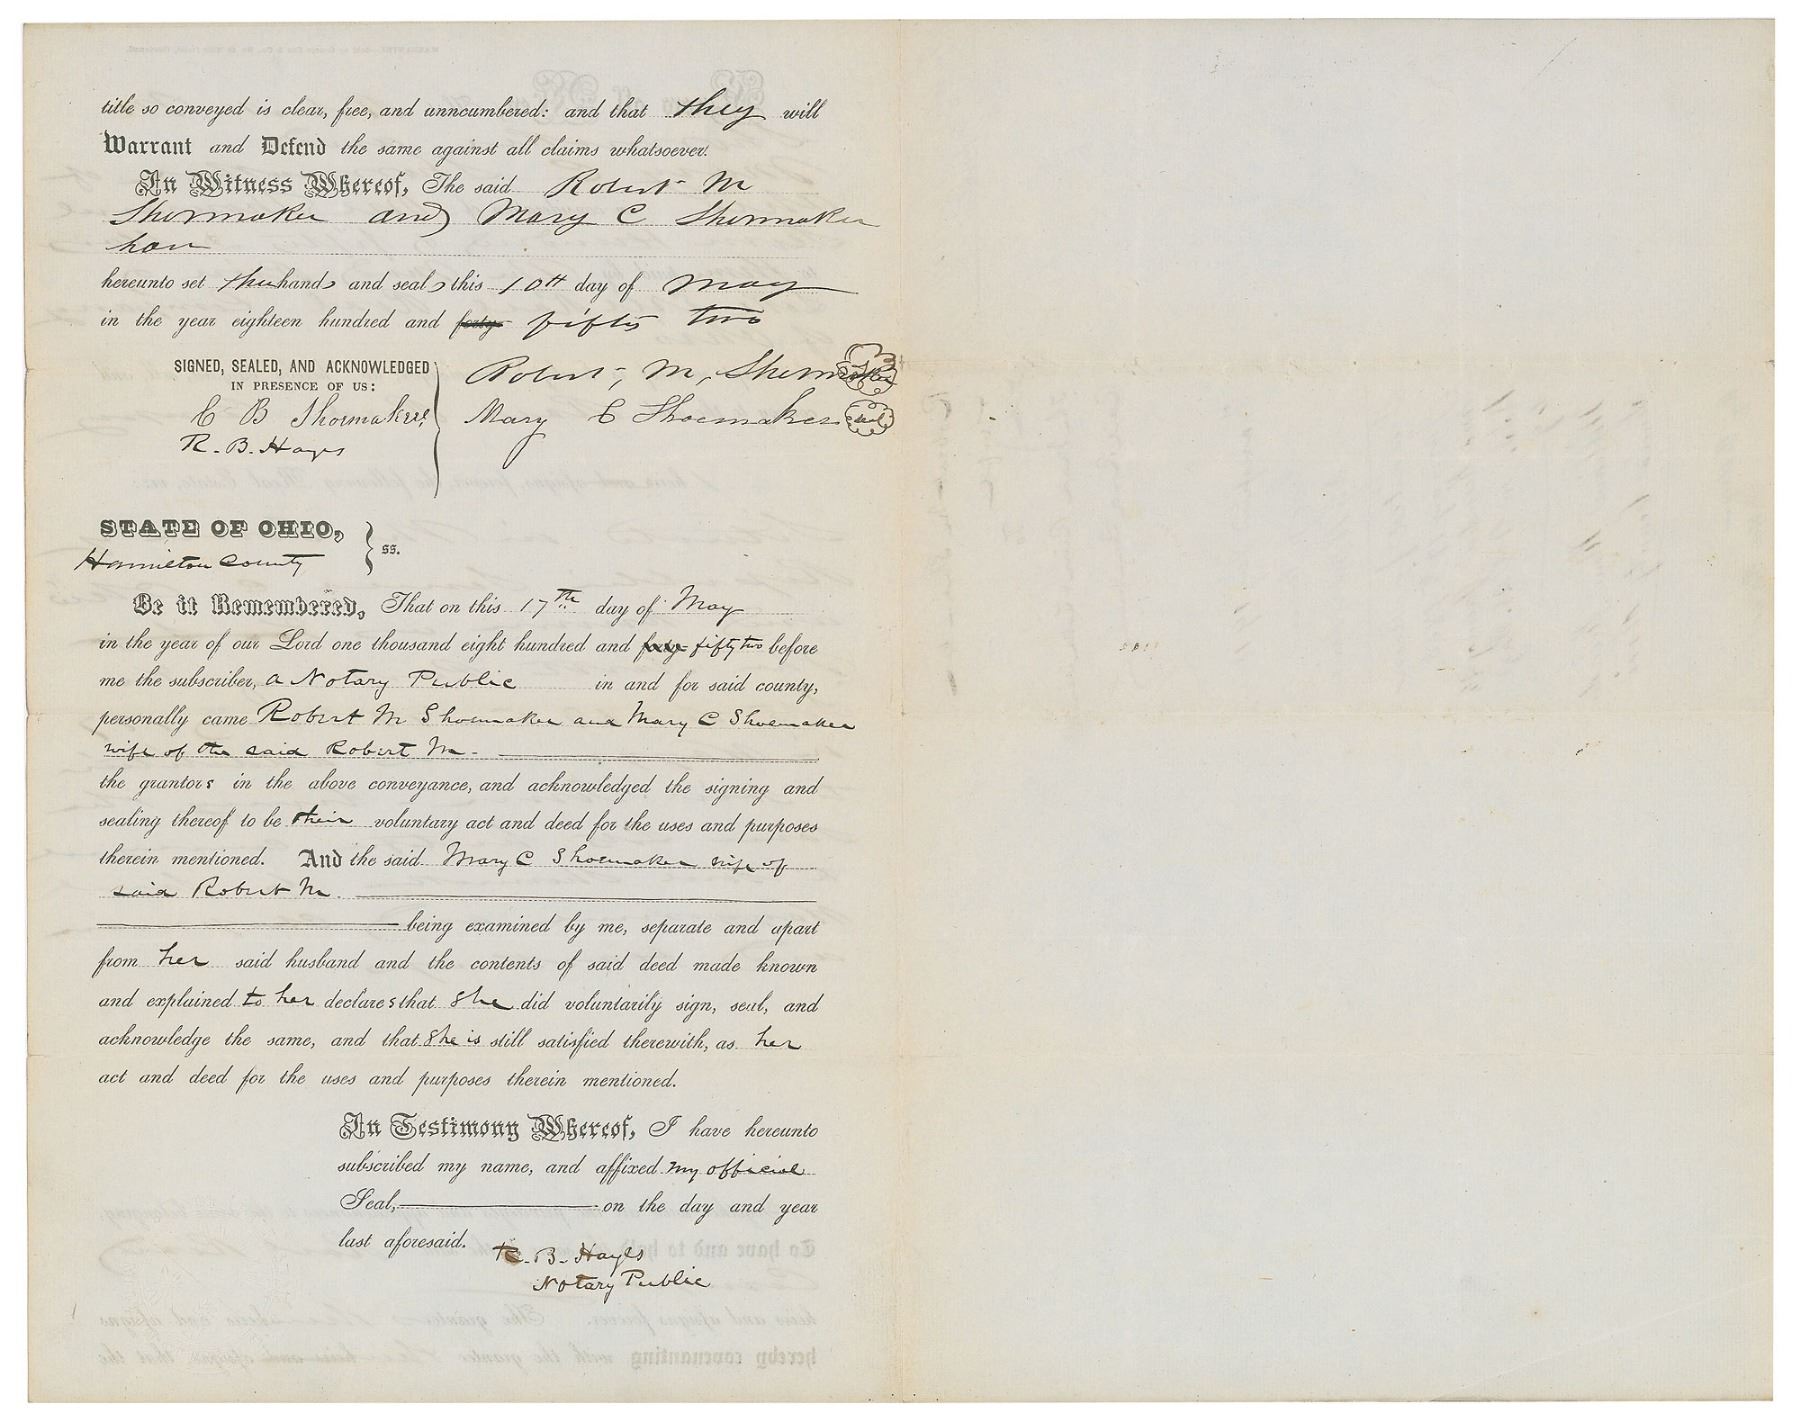 title so conveyed is clear, free, and unncumbered: and that they will
Warrant and Defend the same against all claims whatsoever.
In Witness Whereof, The said Robert M
Shoemaker and Mary C Shoemaker
have
hereunto set their hands and seals this 10th day of May
in the year eighteen hundred and forty fifty two
SIGNED, SEALED, AND ACKNOWLEDGED
IN PRESENCE OF US:
Robert, M, Shoemaker
C B Shoemaker
Mary C Shoemaker seal
R. B. Hayes
STATE OF OHIO,
Hamilton County
ss.
Be it Remembered, That on this 17th day of May
in the year of our Lord one thousand eight hundred and forty fifty two before
me the subscriber, a Notary Public in and for said county,
personally came Robert M Shoemaker and Mary C Shoemaker
wife of the said Robert M.
the grantors in the above conveyance, and acknowledged the signing and
sealing thereof to be their voluntary act and deed for the uses and purposes
therein mentioned. And the said Mary C Shoemaker wife of
said Robert M.
being examined by me, separate and apart
from her said husband and the contents of said deed made known
and explained to her declares that she did voluntarily sign, seal, and
acknowledge the same, and that she is still satisfied therewith, as her
act and deed for the uses and purposes therein mentioned.
In Testimony Whereof, I have hereunto
subscribed my name, and affixed my official
Seal, on the day and year
last aforesaid.
R. B. Hayes
Notary Public